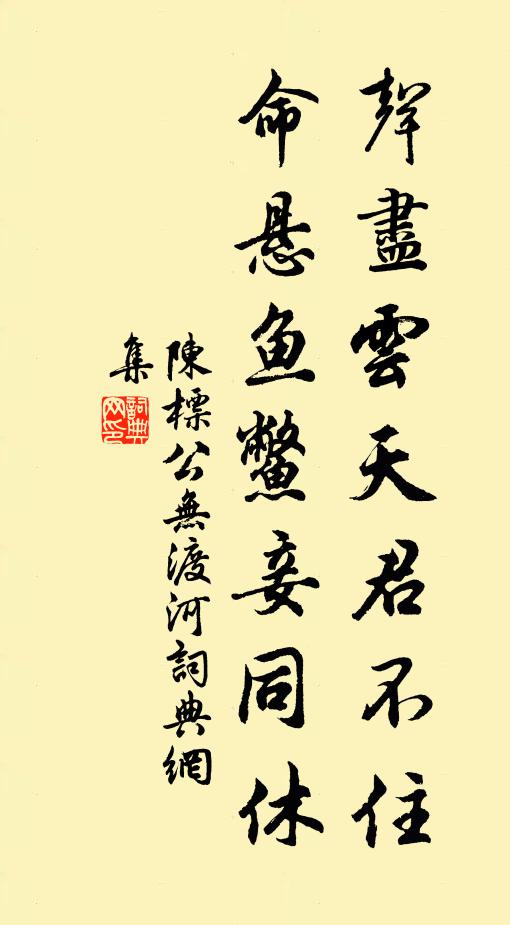 聲盡雲天君不住
命悬鱼鱉妾同休
陳標公無渡河詞典網
集
詞典
网印